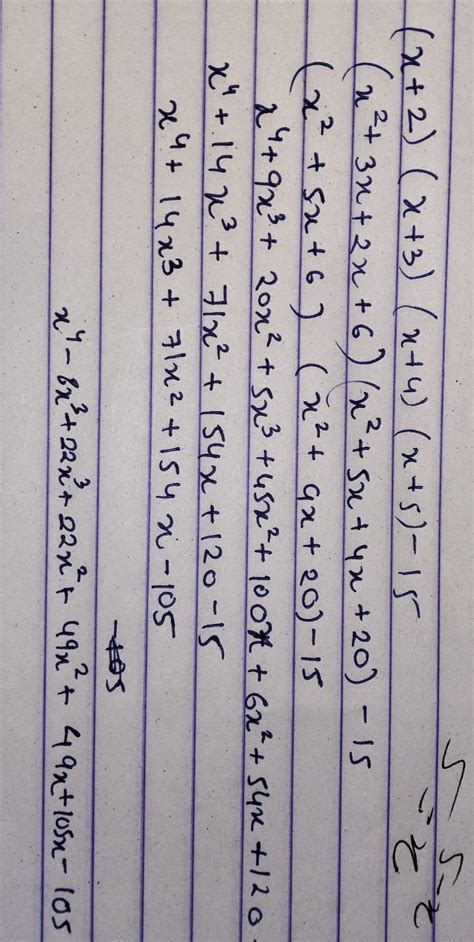 (x+2) (x+3) (x+4) (x+5) - 15
(x² + 3x + 2x + 6) (x² + 5x + 4x + 20) - 15
(x² + 5x + 6) (x² + 9x + 20) - 15
x⁴ + 9x³ + 20x² + 5x³ + 45x² + 100x + 6x² + 54x + 120 -
x⁴ + 14x³ + 71x² + 154x + 120 - 15
x⁴ + 14x³ + 71x² + 154x - 105
x⁴ - 8x³ + 22x³ + 22x² + 49x² + 49x + 105x - 105